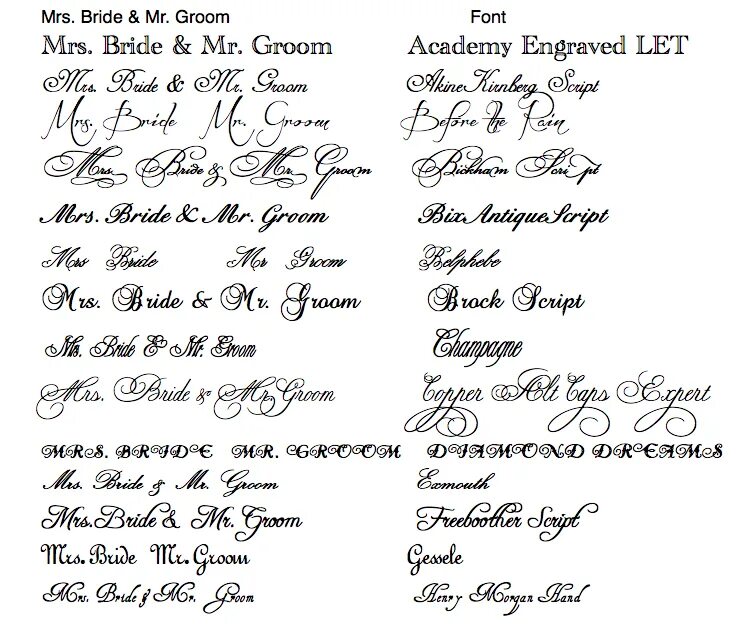 Mrs. Bride & Mr. Groom Font
Mrs. Bride & Mr. Groom Academy Engraved LET
Mrs. Bride & Mr. Groom AkineKirnberg Script
Mrs. Bride Mr. Groom Before the Rain
Mrs. Bride & Mr. Groom Bickham Script
Mrs. Bride & Mr. Groom BixAntiqueScript
Mrs Bride Mr Groom Belphebe
Mrs. Bride & Mr. Groom Brock Script
Mrs. Bride & Mr. Groom Champagne
Mrs. Bride & Mr. Groom Copper Alt Caps Expert
MRS. BRIDE MR. GROOM DIAMOND DREAMS
Mrs. Bride & Mr. Groom Exmouth
Mrs. Bride & Mr. Groom Freeboother Script
Mrs. Bride Mr. Groom Gessele
Mrs. Bride & Mr. Groom Henry Morgan Hand